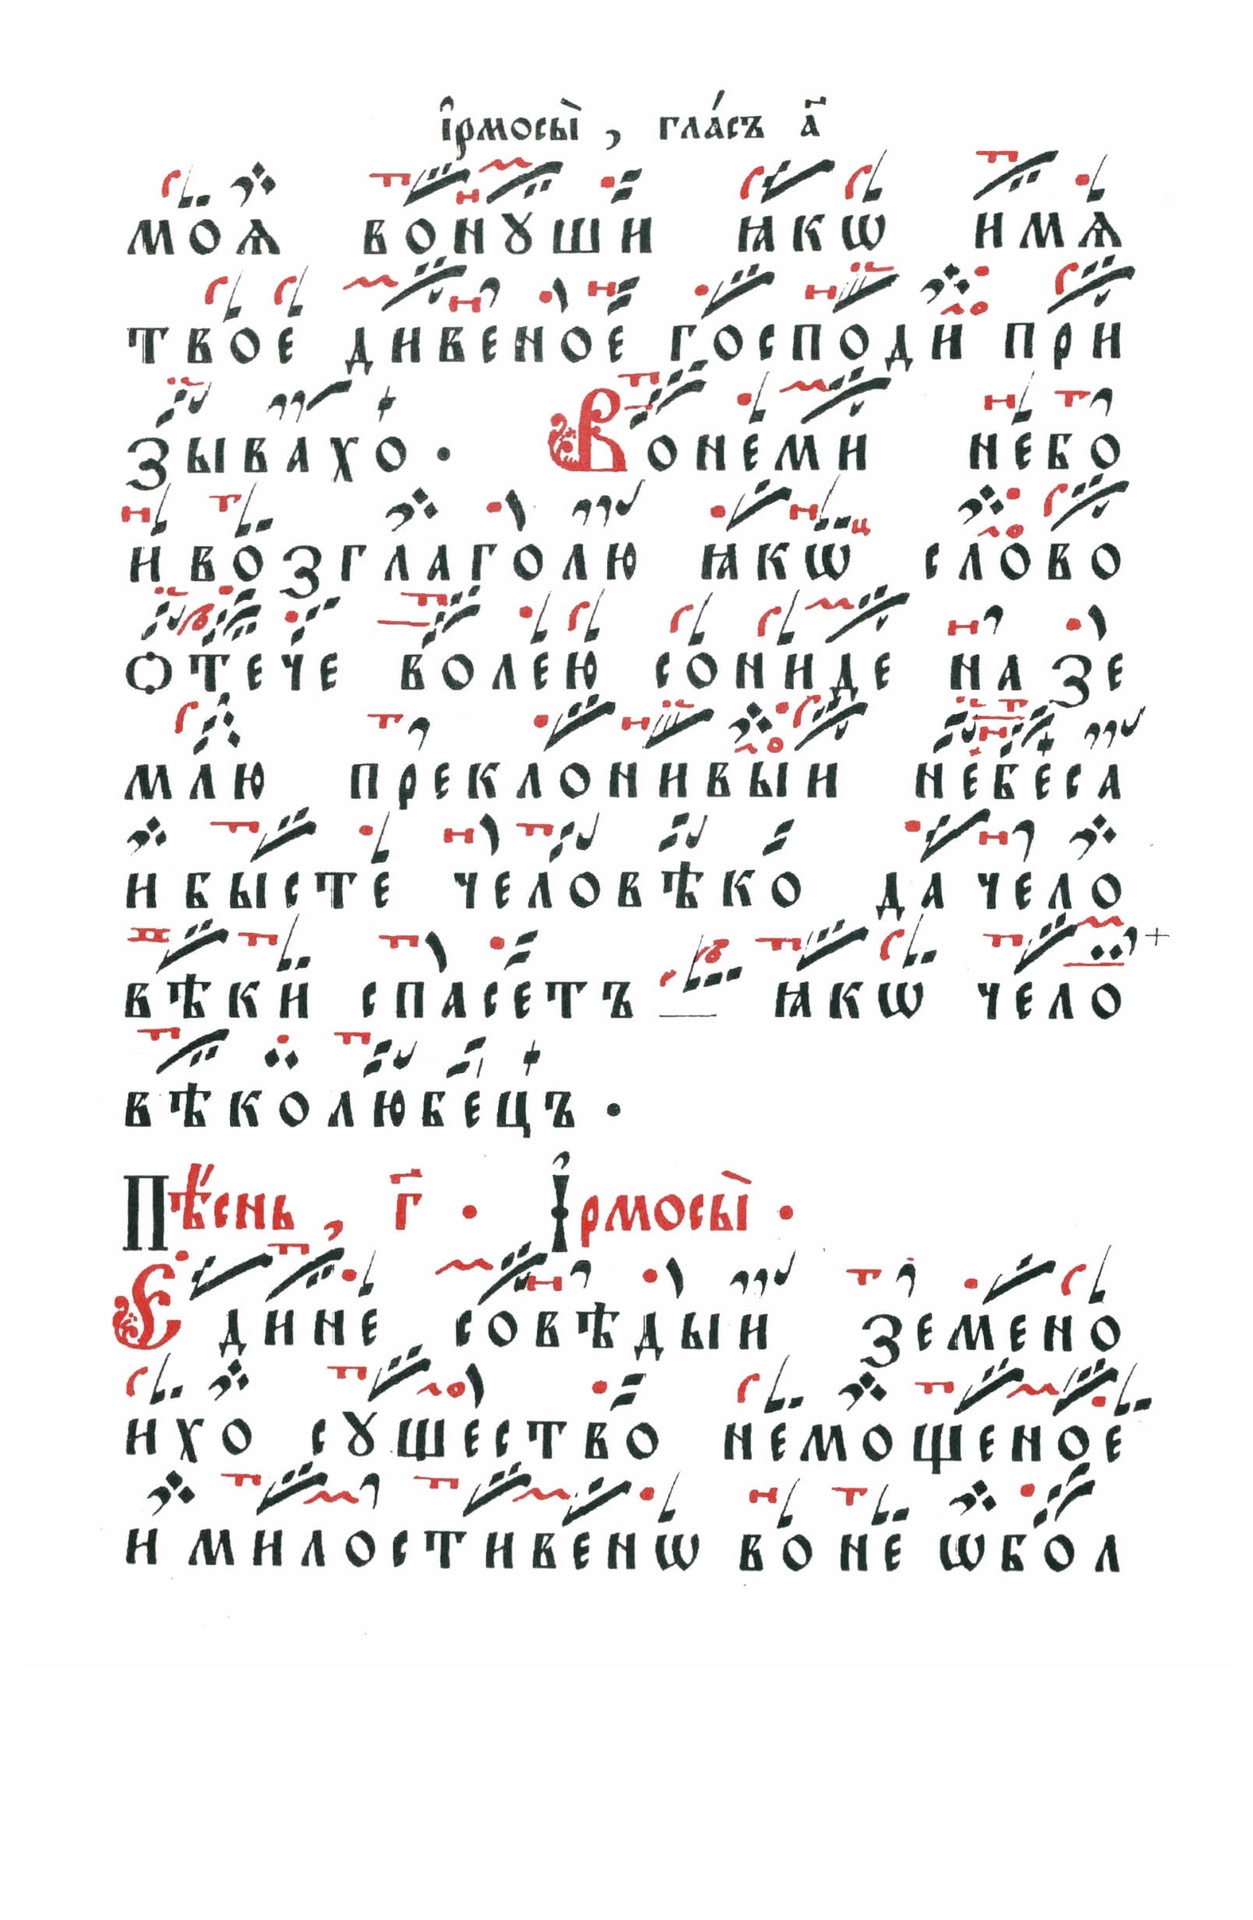 і҆рмосы̀, гла́съ а҃
моѧ вонꙋши ꙗкѡ имѧ
твое дивеное господи при
зывахо. Вонеми небо
и возглаголю ꙗкѡ слово
ѻтече волею сониде на зе
млю преклонивыи небеса
и бысте человѣко да чело
вѣки спасетъ ꙗкѡ чело
вѣколюбецъ.
Пѣ́снь, г҃. І҆рмосы̀.
Едине совѣдыи земено
ихо сꙋщество немощеное
и милостивенѡ во не ѡбол